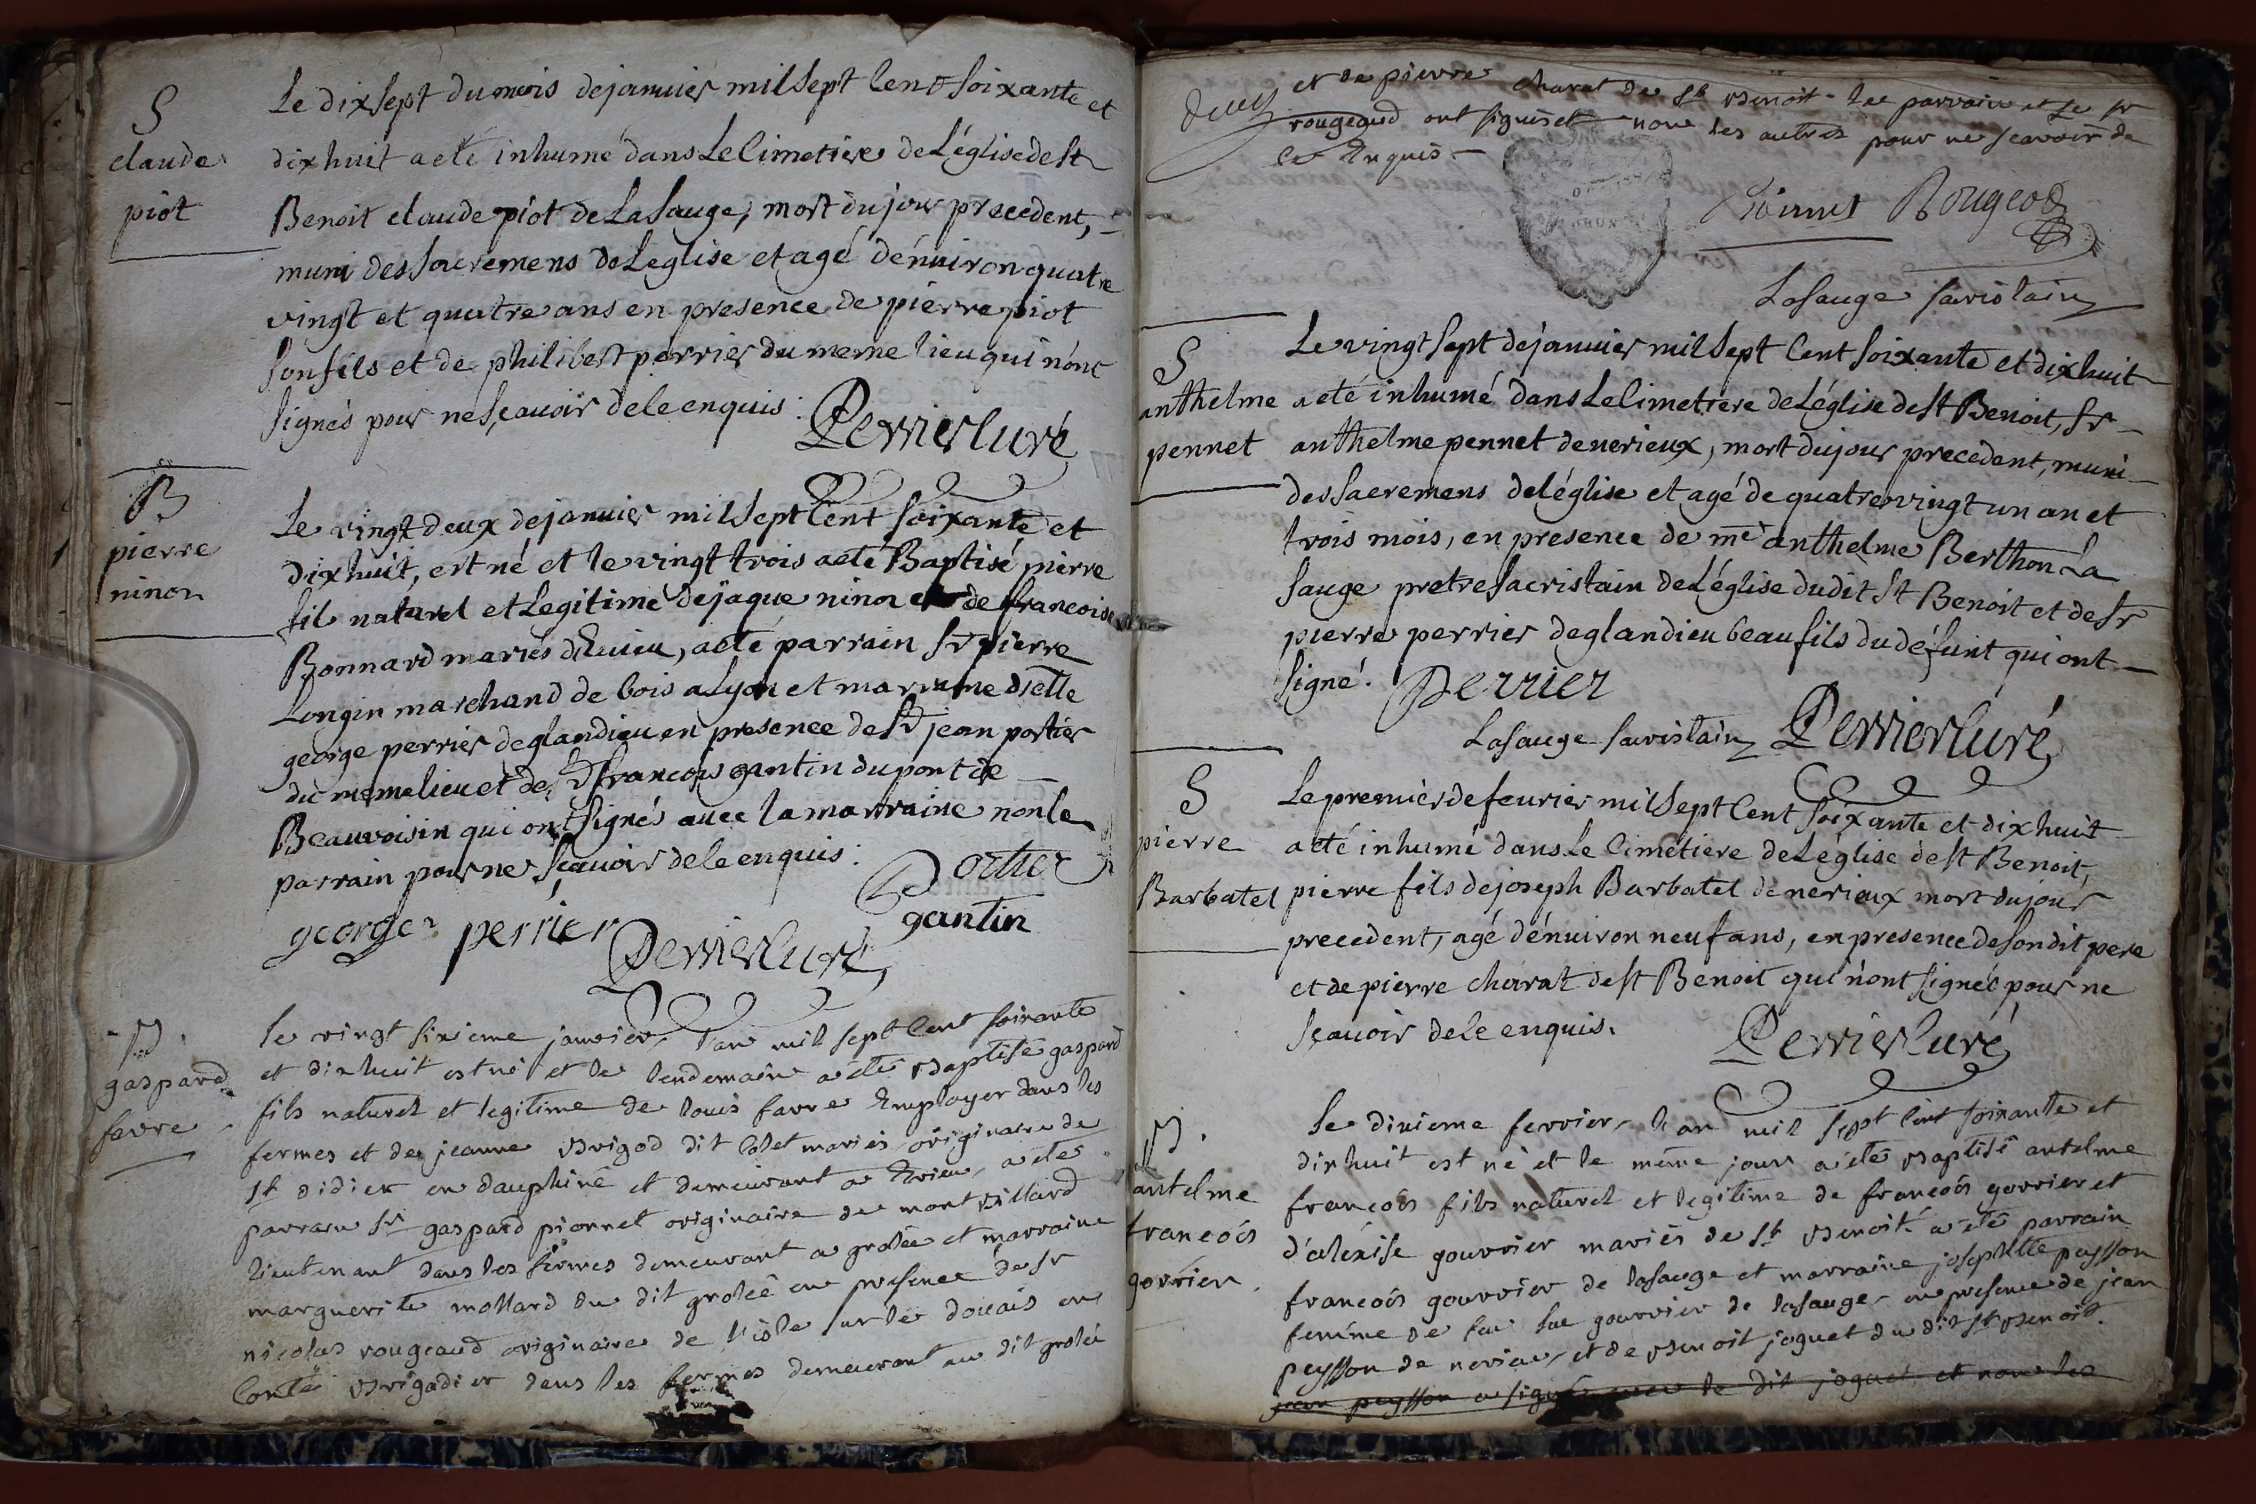 S
claude
piot
Le dixsept du mois de janvier mil sept Cent soixante et
dix huit a eté inhumé dans Le Cimetiere de L'église de St
Benoit claude piot de La Sauge, mort du jour precedent,
muni des sacremens de L'eglise et agé d'énuiron quatre
vingt et quatre ans en presence de pierre piot
son fils et de philibert perrier du meme lieu qui n'ont
signés pour ne sçauoir de le enquis.
Perrier Curé
B
pierre
ninon
Le vingt deux de janvier mil sept Cent soixante et
dix huit, est né et le vingt trois a eté Baptisé pierre
fils naturel et Legitime de jaque ninon et de francoise
Bonnard mariés d'Evieu, a eté parrain Sr pierre
Longin marchand de bois a Lyon et marraine dlle
george perrier de glandieu en presence de Sr jean portier
du meme lieu et de Sr francois gantin du pont de
Beauvoisin qui ont signés avec la marraine non le
parrain pour ne sçauoir de le enquis.
Portier
george perrier
gantin
Perrier Curé
B.
gaspard
favre
le vingt sixieme janvier l'an mil sept Cent soixante
et dix huit est né et le lendemain a eté Baptisé gaspard
fils naturel et legitime de louis favre Employer dans les
fermes et de jeanne Brigod dit Colet mariés originaire de
St didier en dauphiné et demeurant a Evieu, a eté
parrain Sr gaspard pionnet originaire de mont villard
lieutenant dans les fermes demeurant a grolée et marraine
marguerite mollard du dit grolée en presence de Sr
nicolas rougeaud originaire de l'isle sur le douais en
Comté Brigadier dans les fermes demeurant au dit grolée
et de pierre charat de St Benoit. le parrain et le Sr
rougeaud ont signés et non les autres pour ne scavoir de
ce Enquis
Pionnet Rougeod
Lasauge sacristain
S
anthelme
pennet
Le vingt sept de janvier mil sept Cent soixante et dix huit
a eté inhumé dans Le Cimetiere de L'église de St Benoit, Sr
anthelme pennet de nerieux, mort du jour precedent, muni
des sacremens de l'église et agé de quatre vingt un an et
trois mois, en presence de me anthelme Berthon La
sauge pretre sacristain de L'église du dit St Benoit et de Sr
pierre perrier de glandieu beau fils du défunt qui ont
signé.
Perrier
Lasauge sacristain
Perrier Curé
S
pierre
Barbatel
Le premier de feurier mil sept Cent soixante et dix huit
a eté inhumé dans Le Cimetiere de L'église de St Benoit,
pierre fils de joseph Barbatel de nerieux mort du jour
precedent, agé d'énuiron neuf ans, en presence de son dit pere
et de pierre charat de St Benoit qui n'ont signés pour ne
sçauoir de le enquis.
Perrier Curé
B.
antelme
francois
govrier
Le dixieme fevrier, l'an mil sept Cent soixante et
dix huit est né et le même jour a eté Baptisé antelme
françois fils naturel et legitime de françois govrier et
d'aléxise gouvrier mariés de St Benoit. a eté parrain
francois gouvrier de lasauge et marraine josephtte peysson
femme de feu luc gouvrier de lasauge, en presence de jean
peysson de nerieu, et de Benoit joguet du dit St Benoit.
jean peysson a signé avec le dit joguet et non les